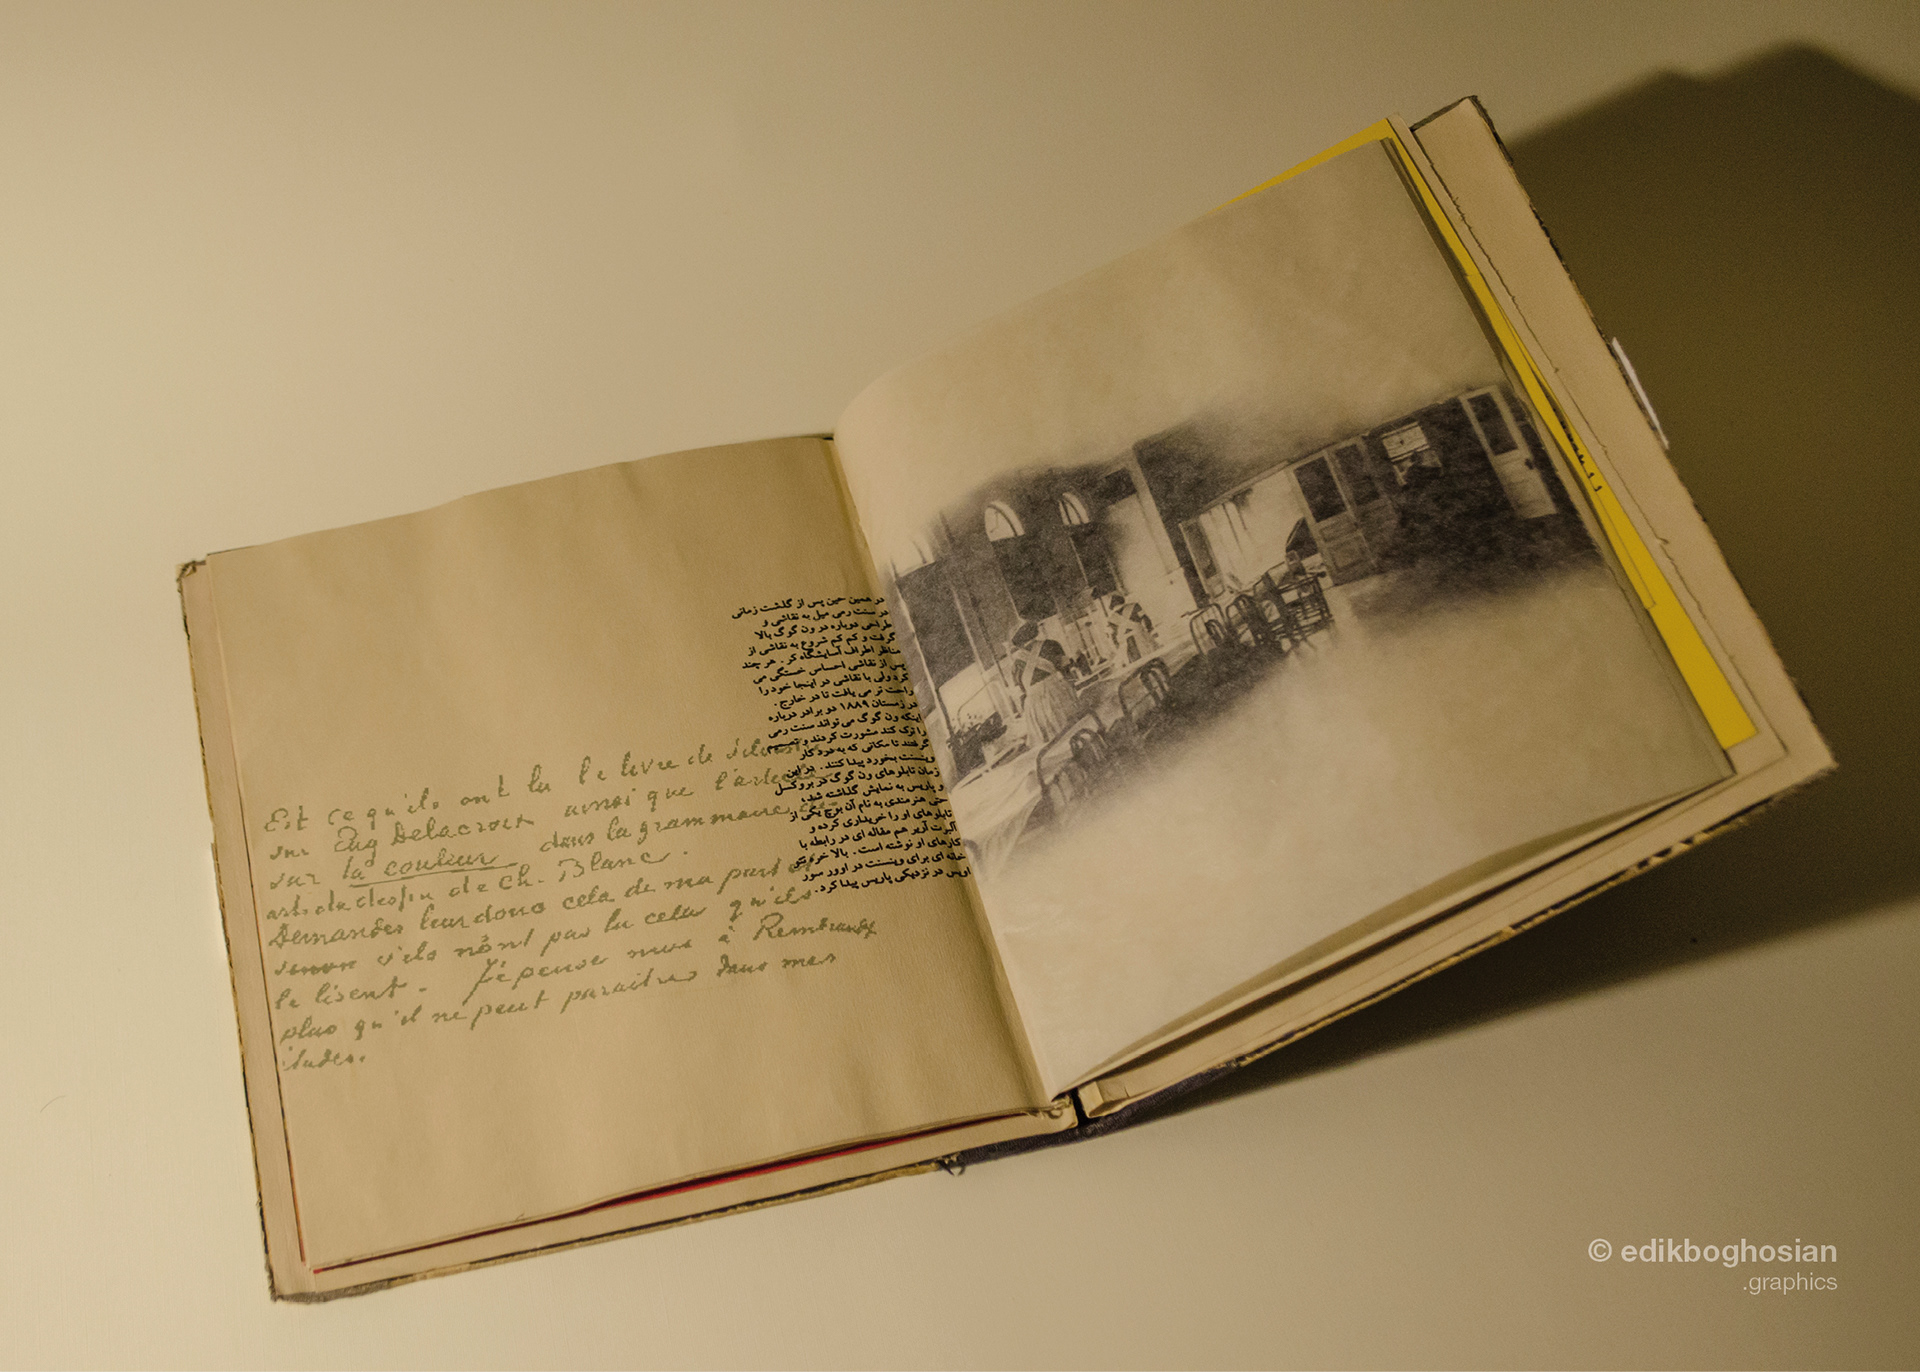 Est ce qu'ils ont lu le livre de Silvestre
sur Eug Delacroix ainsi que l'article
sur la couleur dans la grammaire des
arts du dessin de Ch. Blanc.
Demandez leur donc cela de ma part et
sinon s'ils n'ont pas lu cela qu'ils
le lisent. Je pense moi à Rembrandt
plus qu'il ne peut paraitre dans mes
études.
در همین حین پس از گذشت زمانی
در سنت رمی میل به نقاشی و
طراحی دوباره در ون گوگ بالا
گرفت و کم کم شروع به نقاشی از
مناظر اطراف آسایشگاه کر. هر چند
پس از نقاشی احساس خستگی می
کرد ولی با نقاشی در اینجا خود را
راحت تر می یافت تا در خارج.
در زمستان ۱۸۸۹ دو برادر درباره
اینکه ون گوگ می تواند سنت رمی
را ترک کند مشورت کردند و تصمیم
گرفتند تا مکانی که به درد کار
وینسنت بخورد پیدا کنند. در این
زمان تابلوهای ون گوگ در بروکسل
و پاریس به نمایش گذاشته شد،
حتی هنرمندی به نام آن بوچ یکی از
تابلوهای او را خریداری کرده و
آلبرت آریر هم مقاله ای در رابطه با
کارهای او نوشته است. بالا خره تئو
خانه ای برای وینسنت در اوور سور
اویس در نزدیکی پاریس پیدا کرد.
© edikboghosian
.graphics